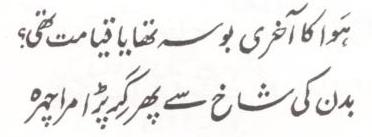 ہَوا کا آخری بوسہ تھا یا قیامت تھی؟
بدن کی شاخ سے پھر گِر پڑا مرا چہرہ